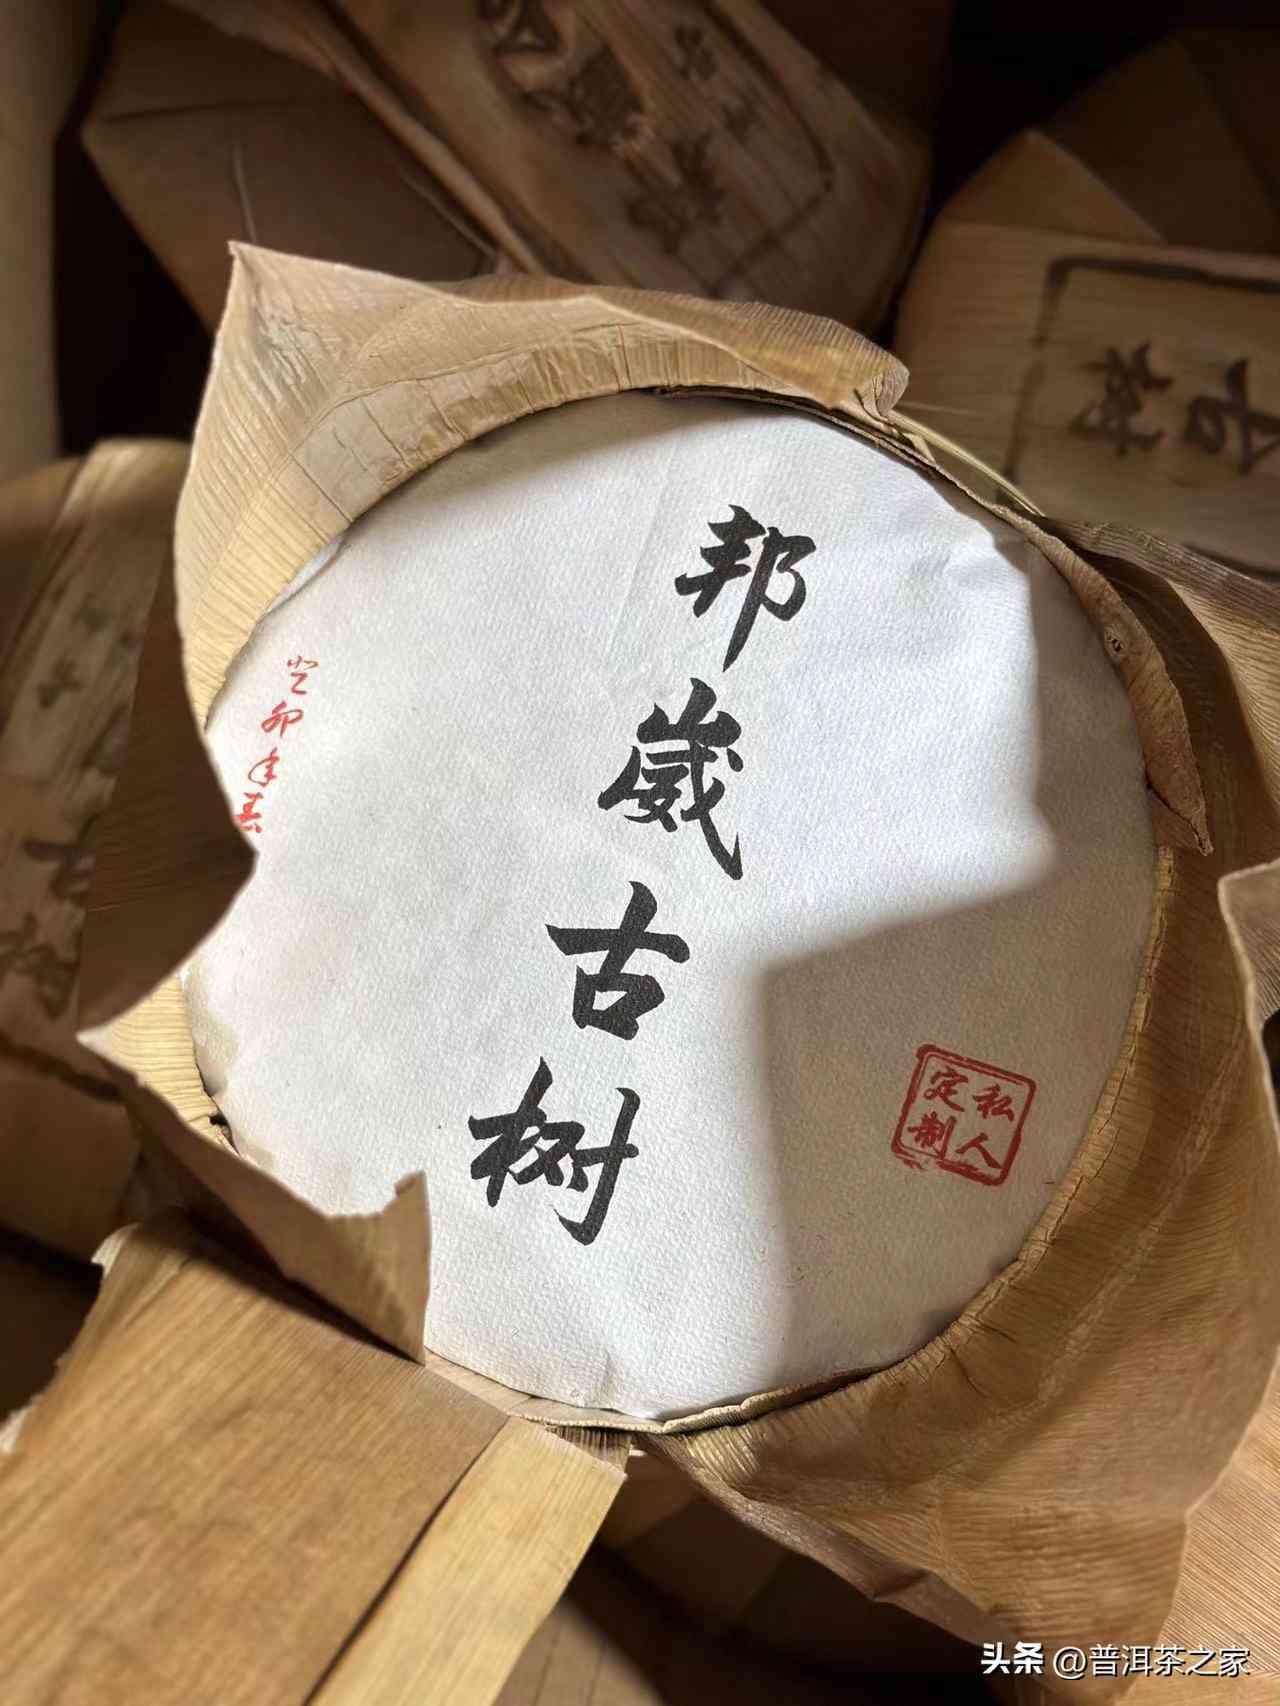 邦崴古树
癸卯年春
私人
定制
古树
头条 @普洱茶之家